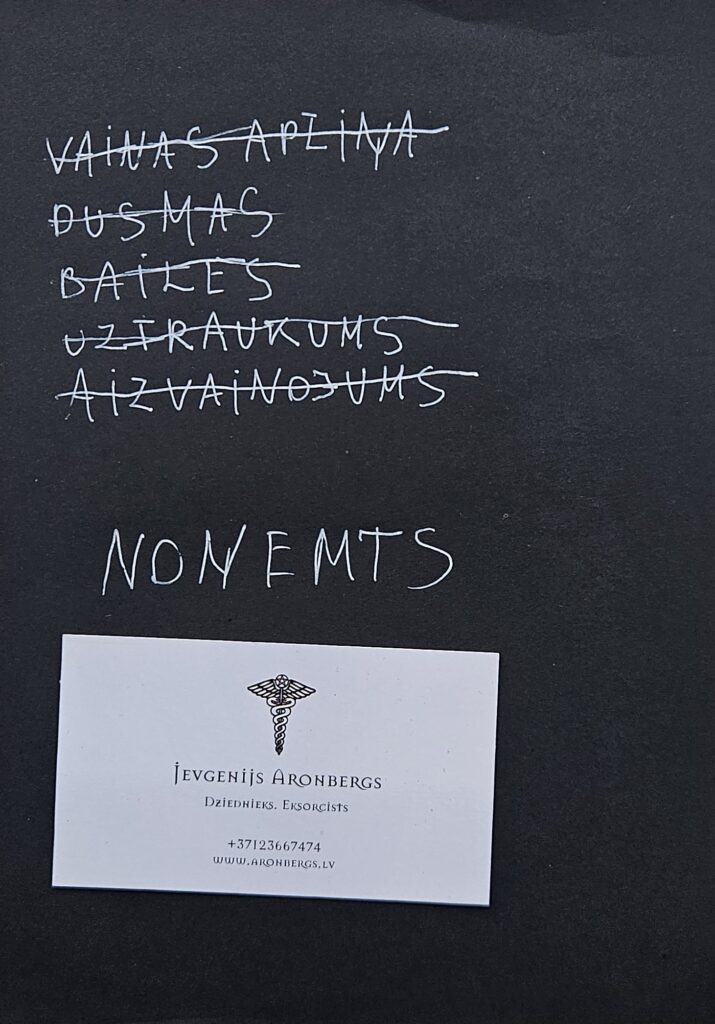 VAINAS APZIŅA
DUSMAS
BAILES
UZTRAUKUMS
AIZVAINOJUMS
NOŅEMTS
Jevgenijs Aronbergs
Dziednieks. Eksorcists
+37123667474
www.aronbergs.lv